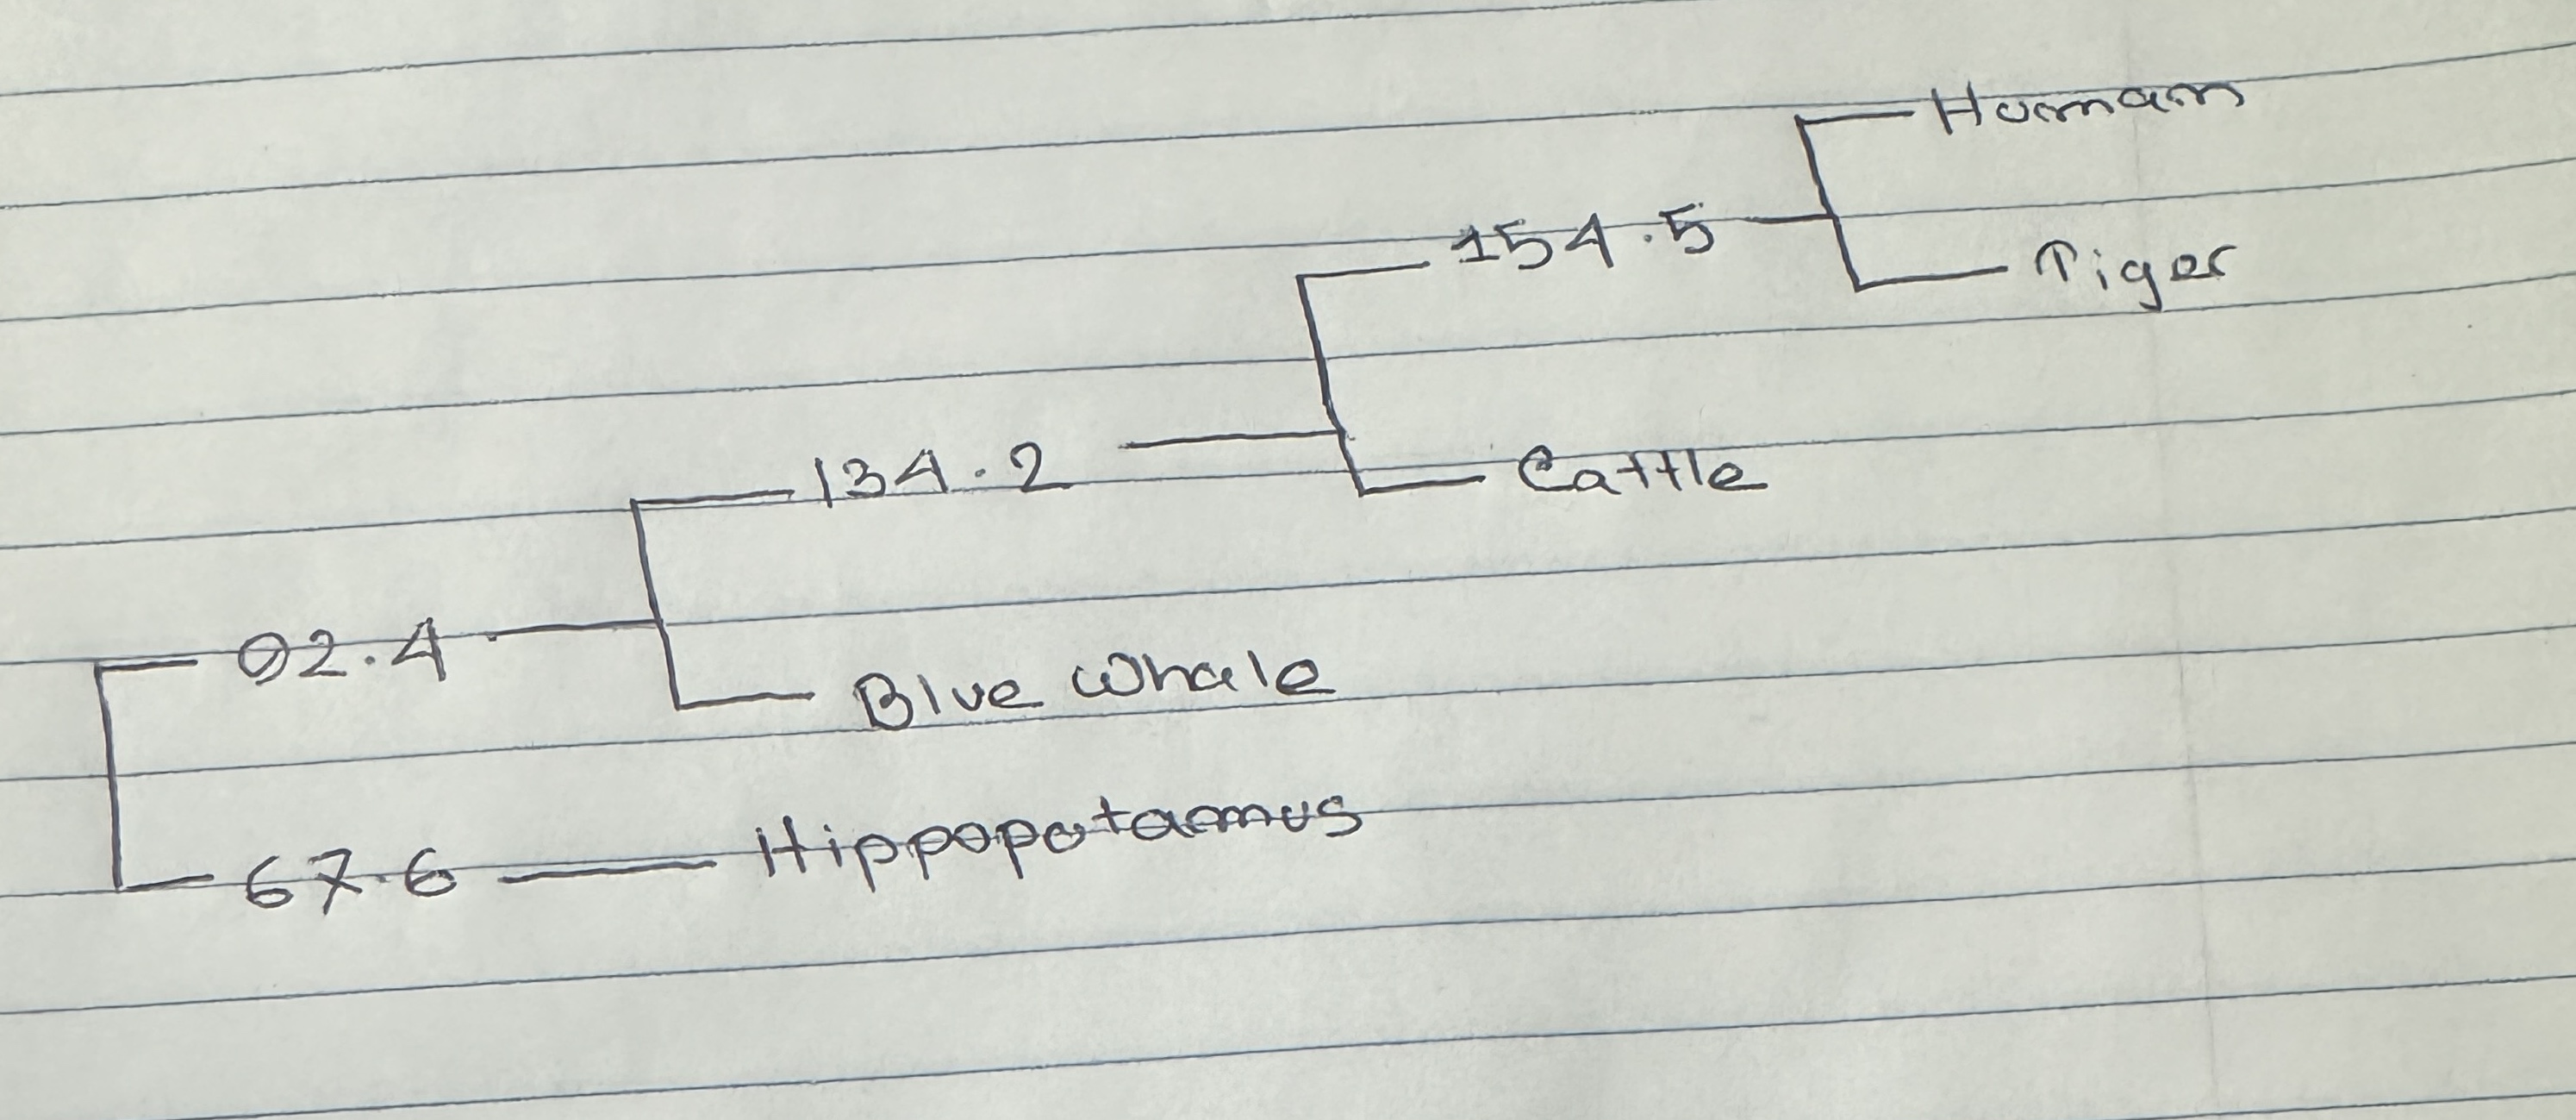 Human
154.5
Tiger
134.2
Cattle
92.4
Blue Whale
67.6
Hippopotamus